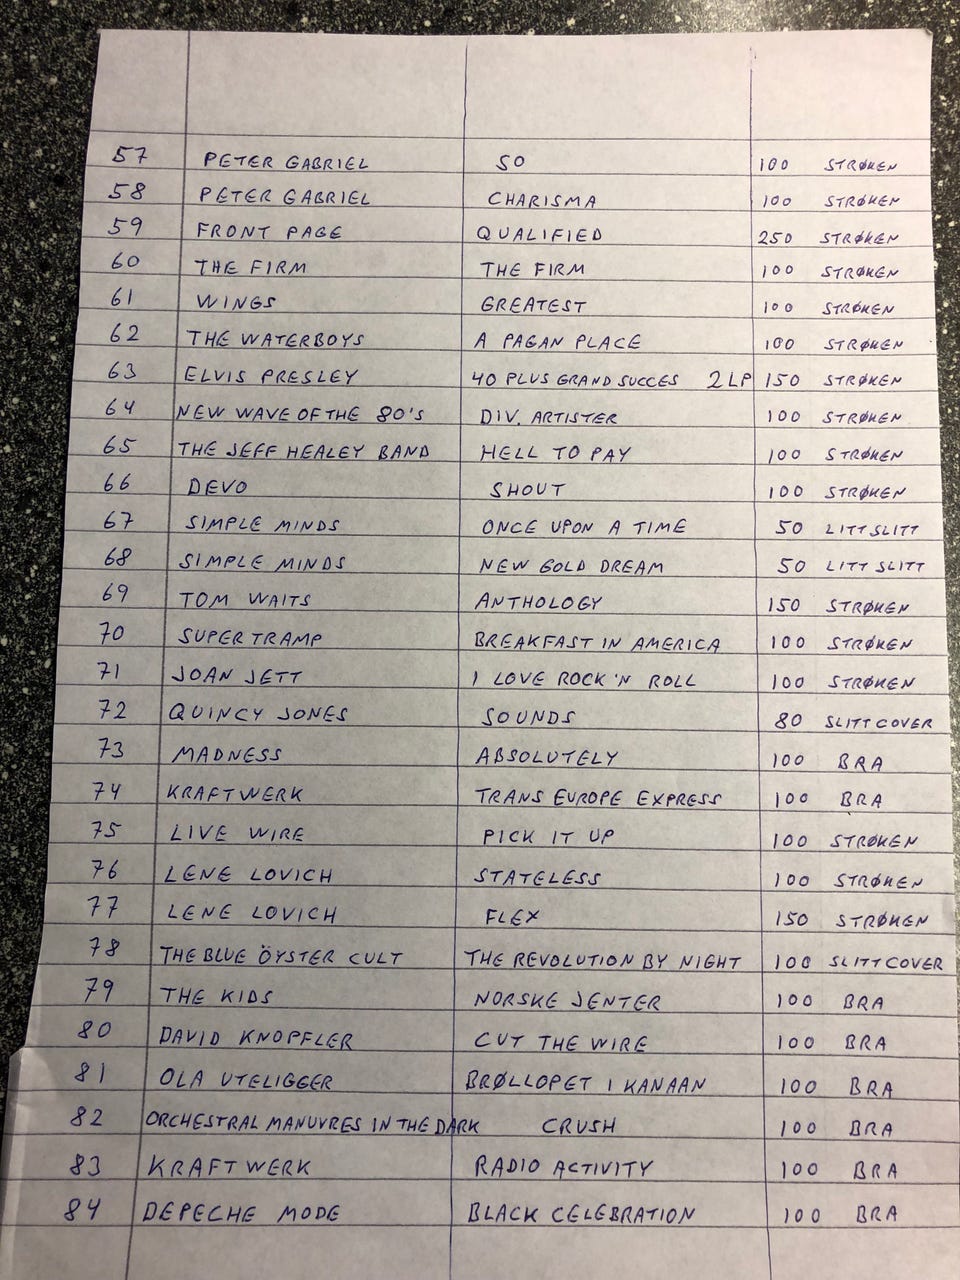 57 PETER GABRIEL SO 100 STRØKEN
58 PETER GABRIEL CHARISMA 100 STRØKEN
59 FRONT PAGE QUALIFIED 250 STRØKEN
60 THE FIRM THE FIRM 100 STRØKEN
61 WINGS GREATEST 100 STRØKEN
62 THE WATERBOYS A PAGAN PLACE 100 STRØKEN
63 ELVIS PRESLEY 40 PLUS GRAND SUCCES 2 LP 150 STRØKEN
64 NEW WAVE OF THE 80'S DIV. ARTISTER 100 STRØKEN
65 THE JEFF HEALEY BAND HELL TO PAY 100 STRØKEN
66 DEVO SHOUT 100 STRØKEN
67 SIMPLE MINDS ONCE UPON A TIME 50 LITT SLITT
68 SIMPLE MINDS NEW GOLD DREAM 50 LITT SLITT
69 TOM WAITS ANTHOLOGY 150 STRØKEN
70 SUPERTRAMP BREAKFAST IN AMERICA 100 STRØKEN
71 JOAN JETT I LOVE ROCK 'N ROLL 100 STRØKEN
72 QUINCY JONES SOUNDS 80 SLITT COVER
73 MADNESS ABSOLUTELY 100 BRA
74 KRAFTWERK TRANS EUROPE EXPRESS 100 BRA
75 LIVE WIRE PICK IT UP 100 STRØKEN
76 LENE LOVICH STATELESS 100 STRØKEN
77 LENE LOVICH FLEX 150 STRØKEN
78 THE BLUE ÖYSTER CULT THE REVOLUTION BY NIGHT 100 SLITT COVER
79 THE KIDS NORSKE JENTER 100 BRA
80 DAVID KNOPFLER CUT THE WIRE 100 BRA
81 OLA UTELIGGER BRØLLOPET I KANAAN 100 BRA
82 ORCHESTRAL MANUVRES IN THE DARK CRUSH 100 BRA
83 KRAFTWERK RADIO ACTIVITY 100 BRA
84 DEPECHE MODE BLACK CELEBRATION 100 BRA